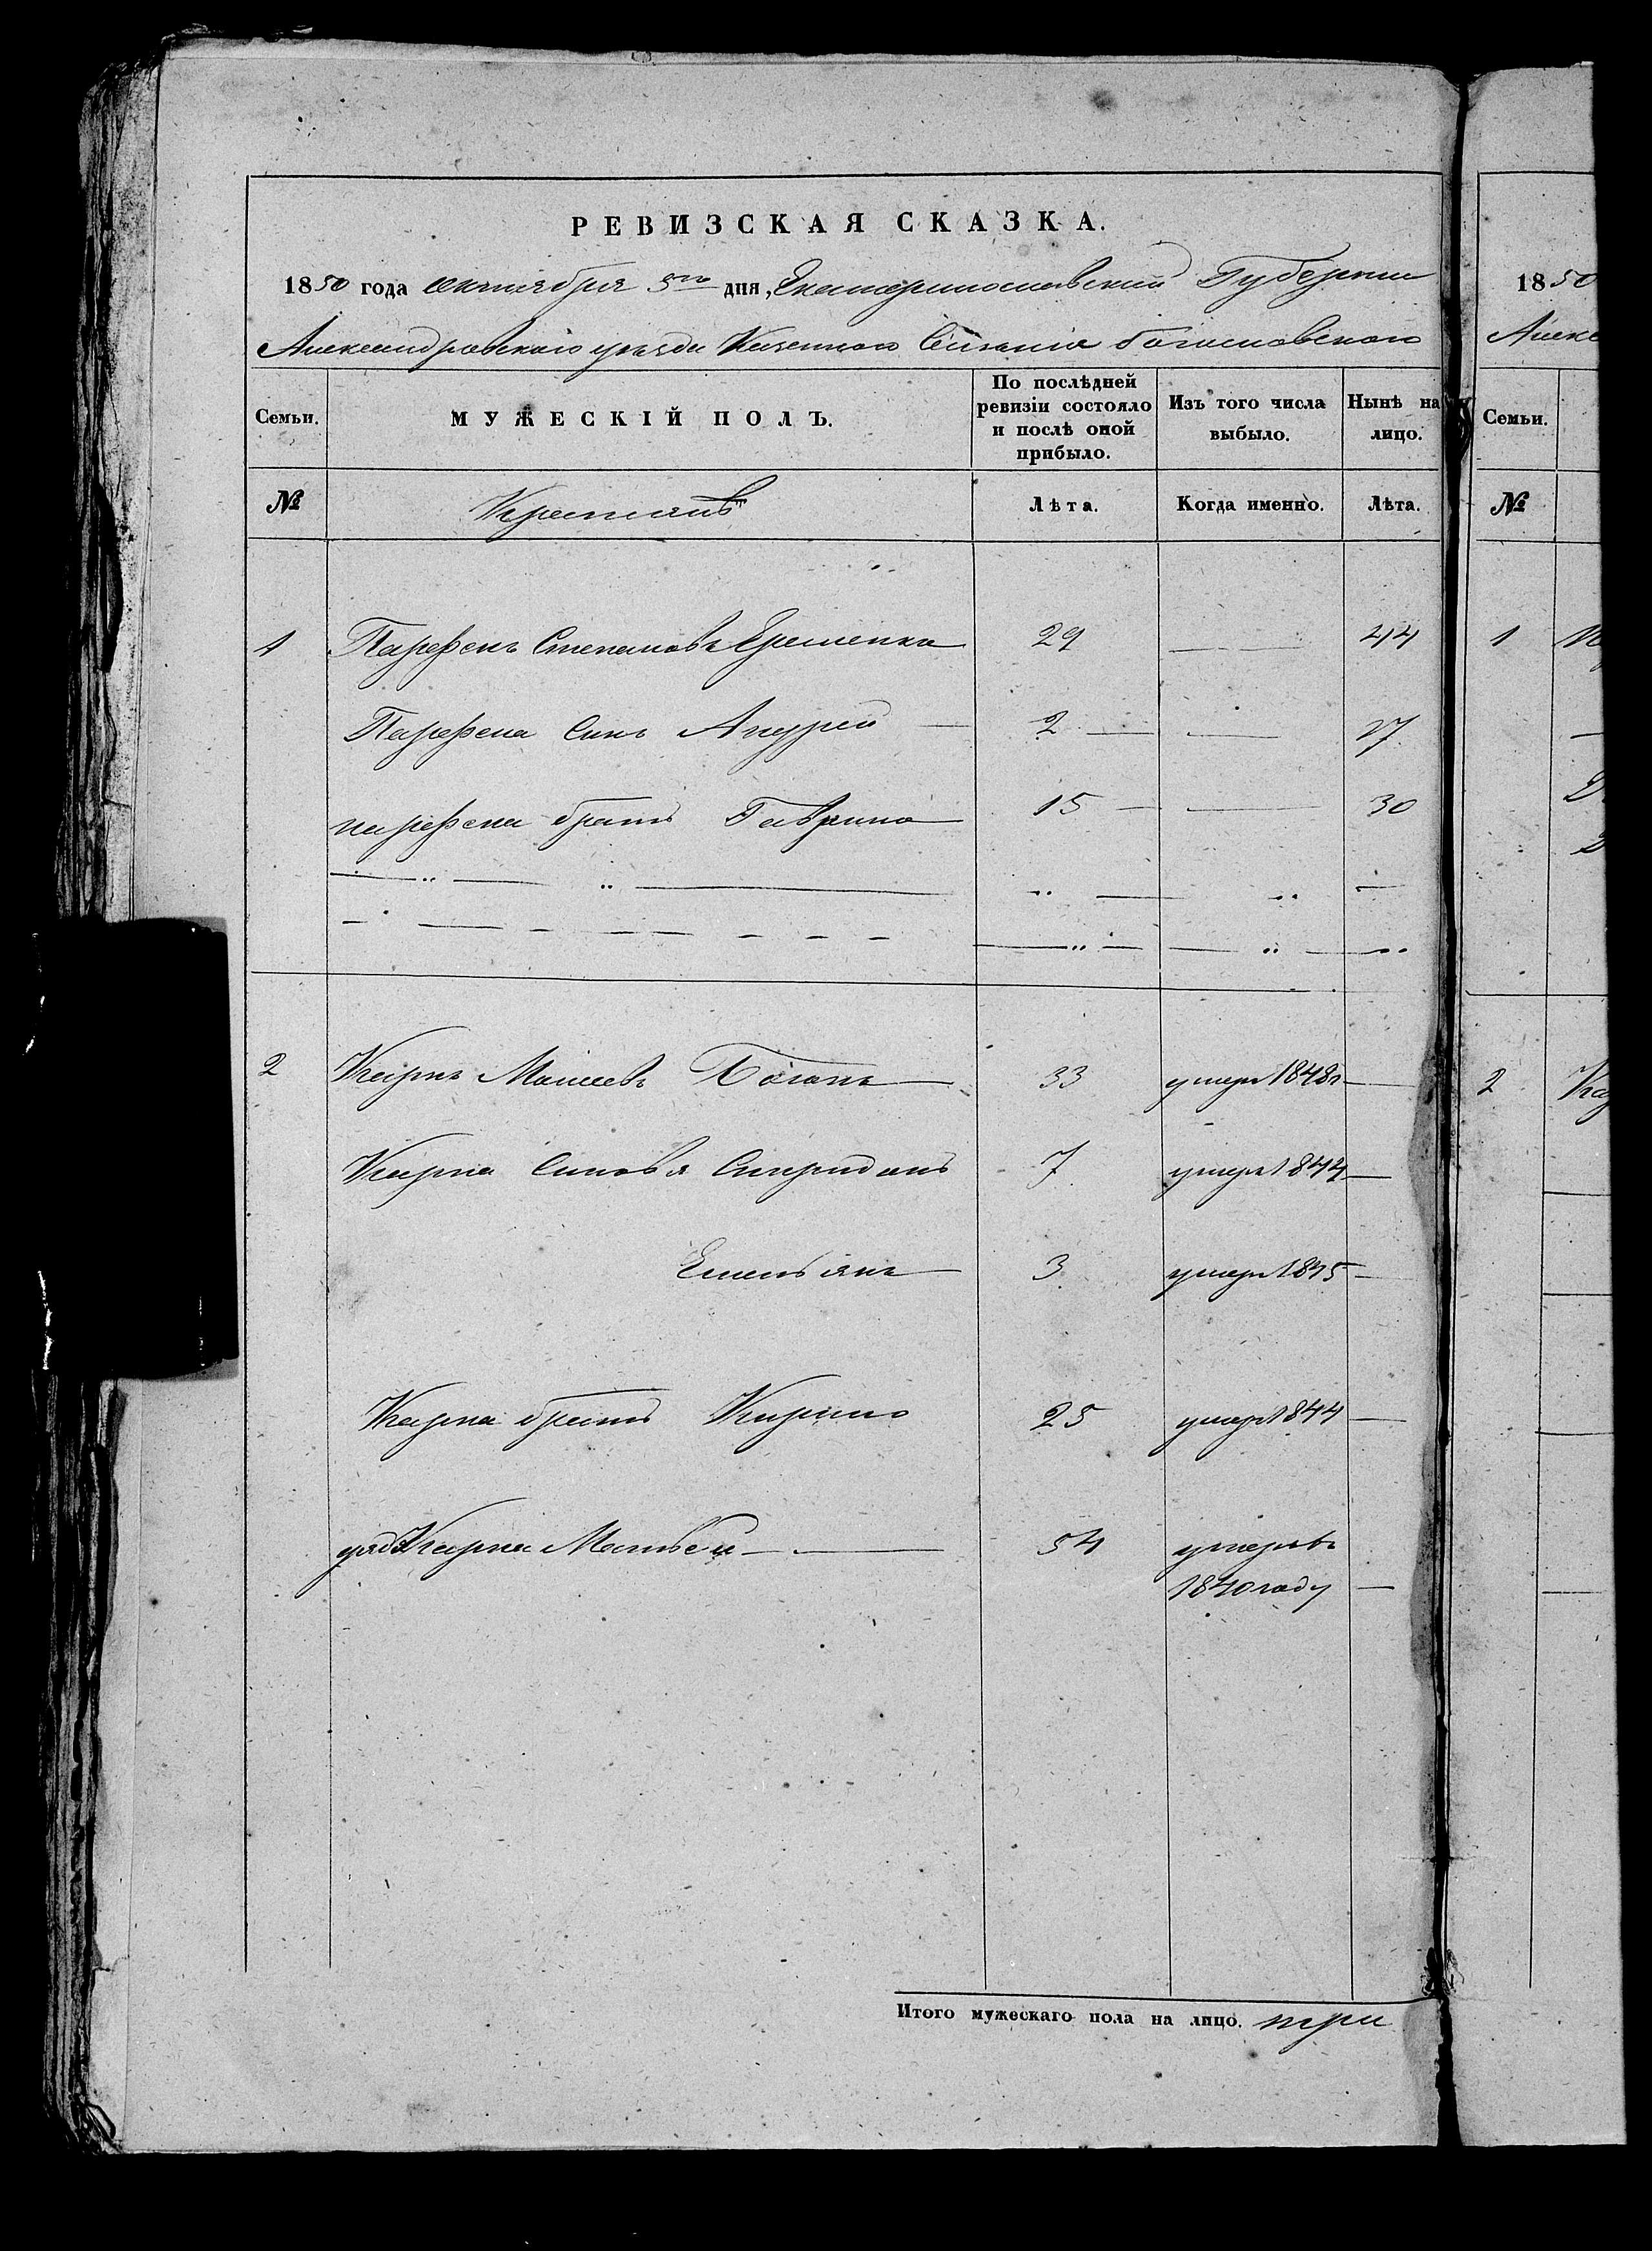 РЕВИЗСКАЯ СКАЗКА.
1850 года октября 5го дня, Екатеринославской Губернии
Александровского уезда Казенного Селения Богословского
Семьи. МУЖЕСКІЙ ПОЛЪ. По послѣдней ревизіи состояло и послѣ оной прибыло. Изъ того числа выбыло. Нынѣ на лицо.
№ Крестьянъ Лѣта. Когда именно. Лѣта.
1 Парфенъ Степановъ Ярешенко 29 — 44
Парфена Синъ Андрей — 2 — — 17
парфена братъ Гаврило 15 — — 30
2 Карпъ Моисеевъ Боганъ — 33 умеръ 1848г —
Карпа Синовя Спиридонъ 7 умеръ 1844 —
Емельянъ — 3 умеръ 1845 —
Карпа братъ Кирило 25 умеръ 1844 —
дядя Карпа Матвей — — 54 умеръ въ
1840 году —
Итого мужескаго пола на лицо. три
1850
Алекс
Семьи.
№
1
2 Кар